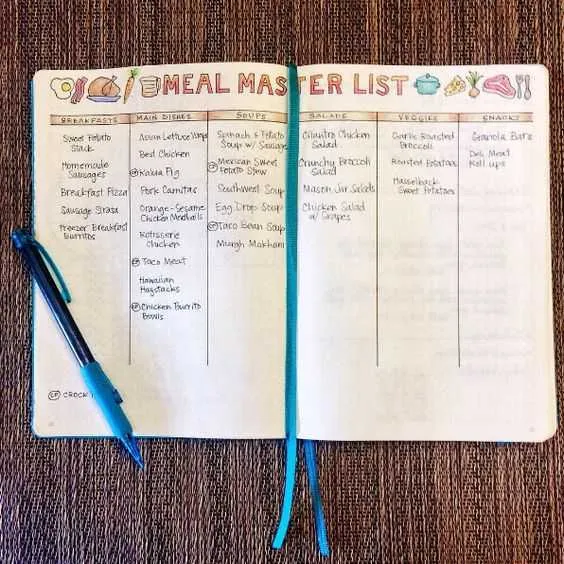 MEAL MASTER LIST
BREAKFASTS
Sweet Potato
Stack
Homemade
Sausages
Breakfast Pizza
Sausage Strata
Freezer Breakfast
Burritos
MAIN DISHES
Asian Lettuce Wraps
Best Chicken
CP Kalua Pig
Pork Carnitas
Orange-Sesame
Chicken Meatballs
Rotisserie
Chicken
CP Taco Meat
Hawaiian
Haystacks
CP Chicken Burrito
Bowls
SOUPS
Spinach & Potato
Soup w/ Sausage
CP Mexican Sweet
Potato Stew
Southwest Soup
Egg Drop Soup
CP Taco Bean Soup
Murgh Makhani
SALADS
Cilantro Chicken
Salad
Crunchy Broccoli
Salad
Mason Jar Salads
Chicken Salad
w/ Grapes
VEGGIES
Garlic Roasted
Broccoli
Roasted Potatoes
Hasselback
Sweet Potatoes
SNACKS
Granola Bars
Deli Meat
Roll ups
CP CROCK